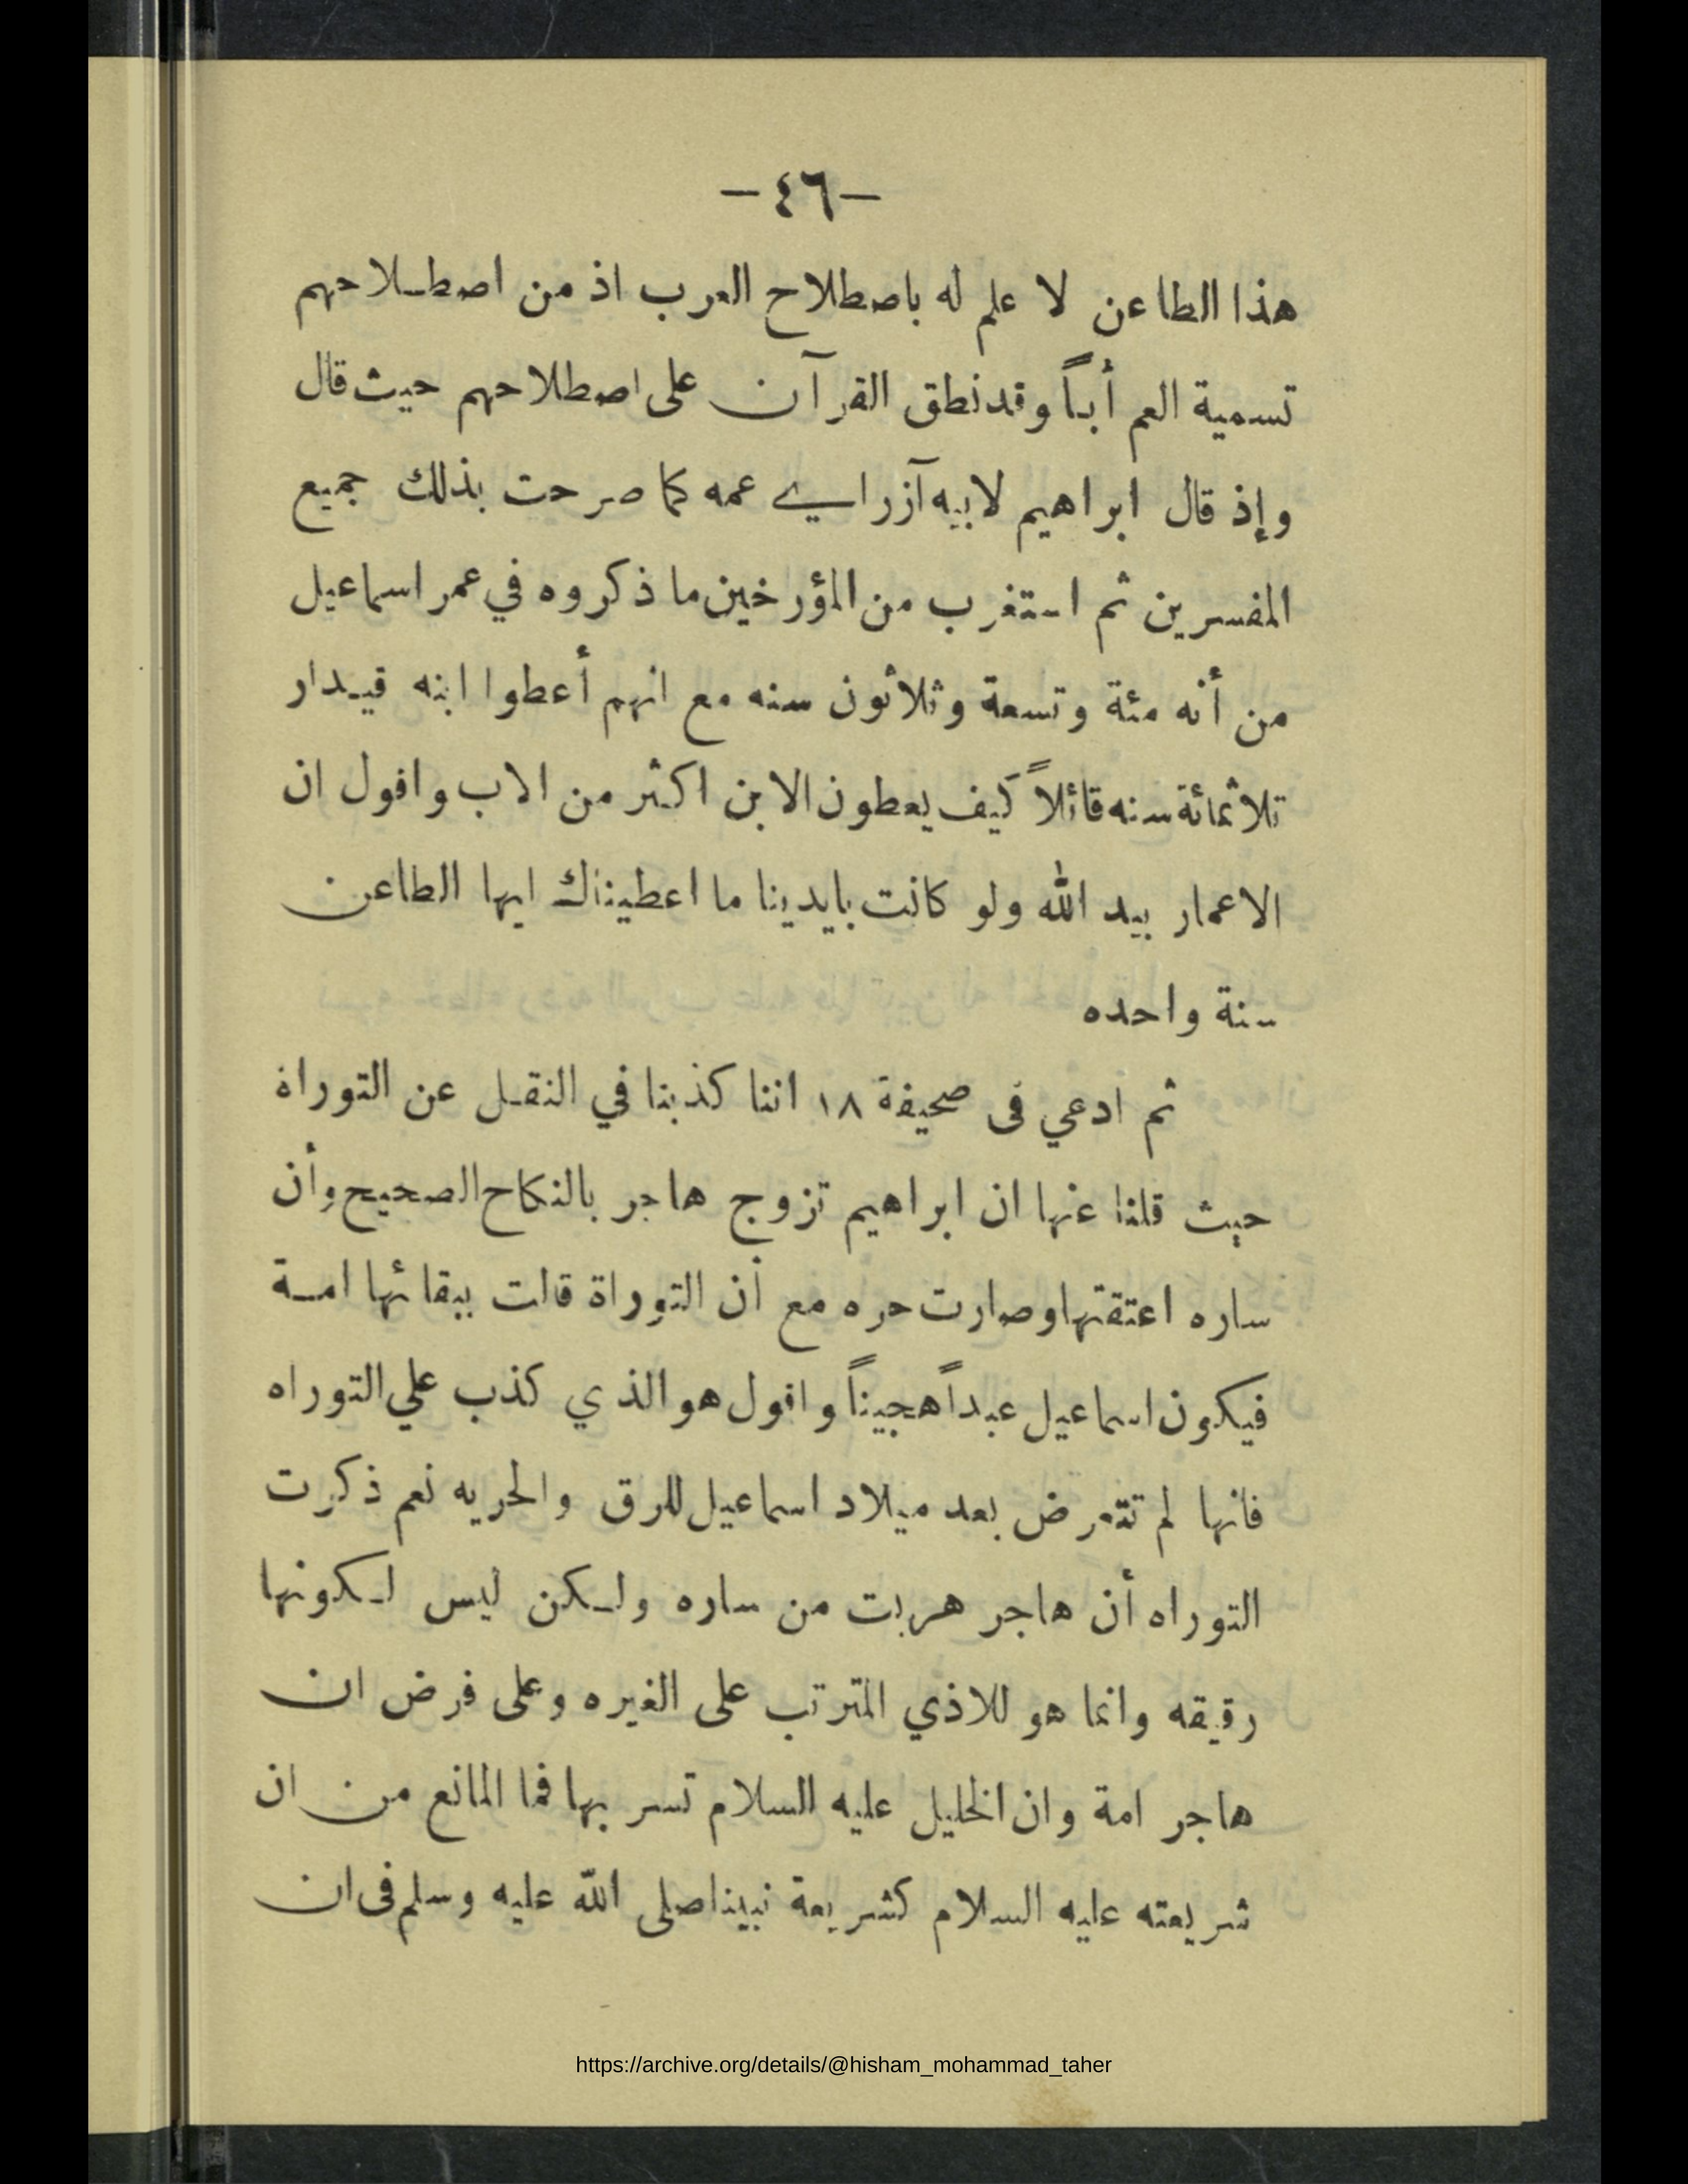 -٤٦-
هذا الطاعن لا علم له باصطلاح العرب اذ من اصطلاحهم
تسمية العم أباً وقد نطق القرآن على اصطلاحهم حيث قال
وإذ قال ابراهيم لابيه آزر اي عمه كما صرحت بذلك جميع
المفسرين ثم استغرب من المؤرخين ما ذكروه في عمر اسماعيل
من أنه مئة وتسعة وثلاثون سنه مع انهم أعطوا ابنه قيدار
تلاثمائة سنه قائلاً كيف يعطون الابن اكثر من الاب واقول ان
الاعمار بيد الله ولو كانت بايدينا ما اعطيناك ايها الطاعن
سنة واحده
ثم ادعي فى صحيفة ١٨ اننا كذبنا في النقل عن التوراة
حيث قلنا عنها ان ابراهيم تزوج هاجر بالنكاح الصحيح وأن
ساره اعتقتها وصارت حره مع أن التوراة قالت ببقائها امة
فيكون اسماعيل عبداً هجيناً واقول هو الذي كذب علي التوراه
فانها لم تتعرض بعد ميلاد اسماعيل للرق والحريه نعم ذكرت
التوراه أن هاجر هربت من ساره ولكن ليس لكونها
رقيقه وانما هو للاذي المترتب على الغيره وعلى فرض ان
هاجر امة وان الخليل عليه السلام تسر بها فما المانع من ان
شريعته عليه السلام كشريعة نبينا صلى الله عليه وسلم فى ان
https://archive.org/details/@hisham_mohammad_taher